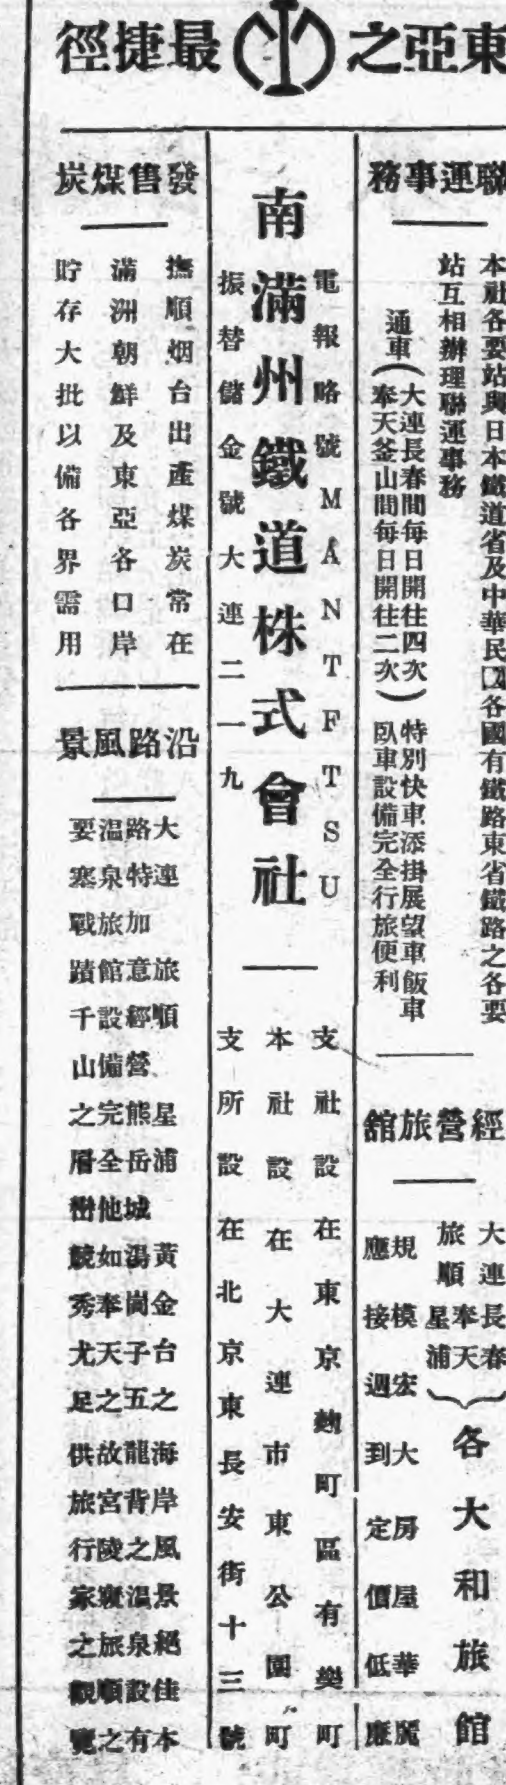 東亞之最捷徑
聯運事務
本社各要站與日本鐵道省及中華民國各國有鐵路東省鐵路之各要
站互相辦理聯運事務
通車(大連長春間每日開往四次
奉天釜山間每日開往二次)
特別快車添掛展望車飯車
臥車設備完全行旅便利
經營旅館
大連長春
旅順奉天
星浦
各大和旅館
規模宏大房屋華麗
應接週到定價低廉
電報略號MANTFTSU
南滿州鐵道株式會社
振替儲金號大連二一九
支社設在東京麹町區有樂町
本社設在大連市東公園町
支所設在北京東長安街十三號
發售煤炭
撫順烟台出產煤炭常在
滿洲朝鮮及東亞各口岸
貯存大批以備各界需用
沿路風景
大連 旅順 星浦 黃金台之海岸風景絕佳本
路特加意經營 熊岳城 湯崗子五龍背之溫泉設有
溫泉旅館設備完全他如奉天之故宮陵寢旅順之
要塞戰蹟千山之層巒競秀尤足供旅行家之觀覽